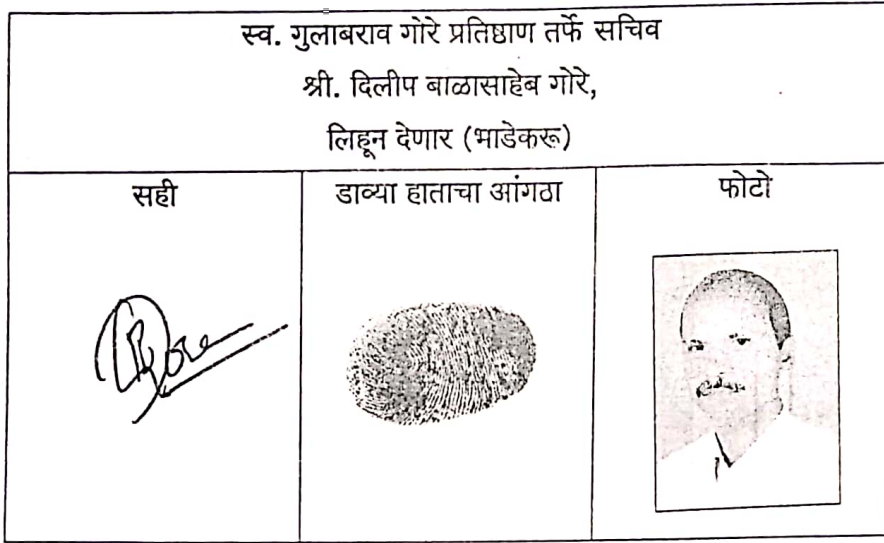 स्व. गुलाबराव गोरे प्रतिष्ठाण तर्फे सचिव
श्री. दिलीप बाळासाहेब गोरे,
लिहून देणार (भाडेकरू)
सही
डाव्या हाताचा आंगठा
फोटो